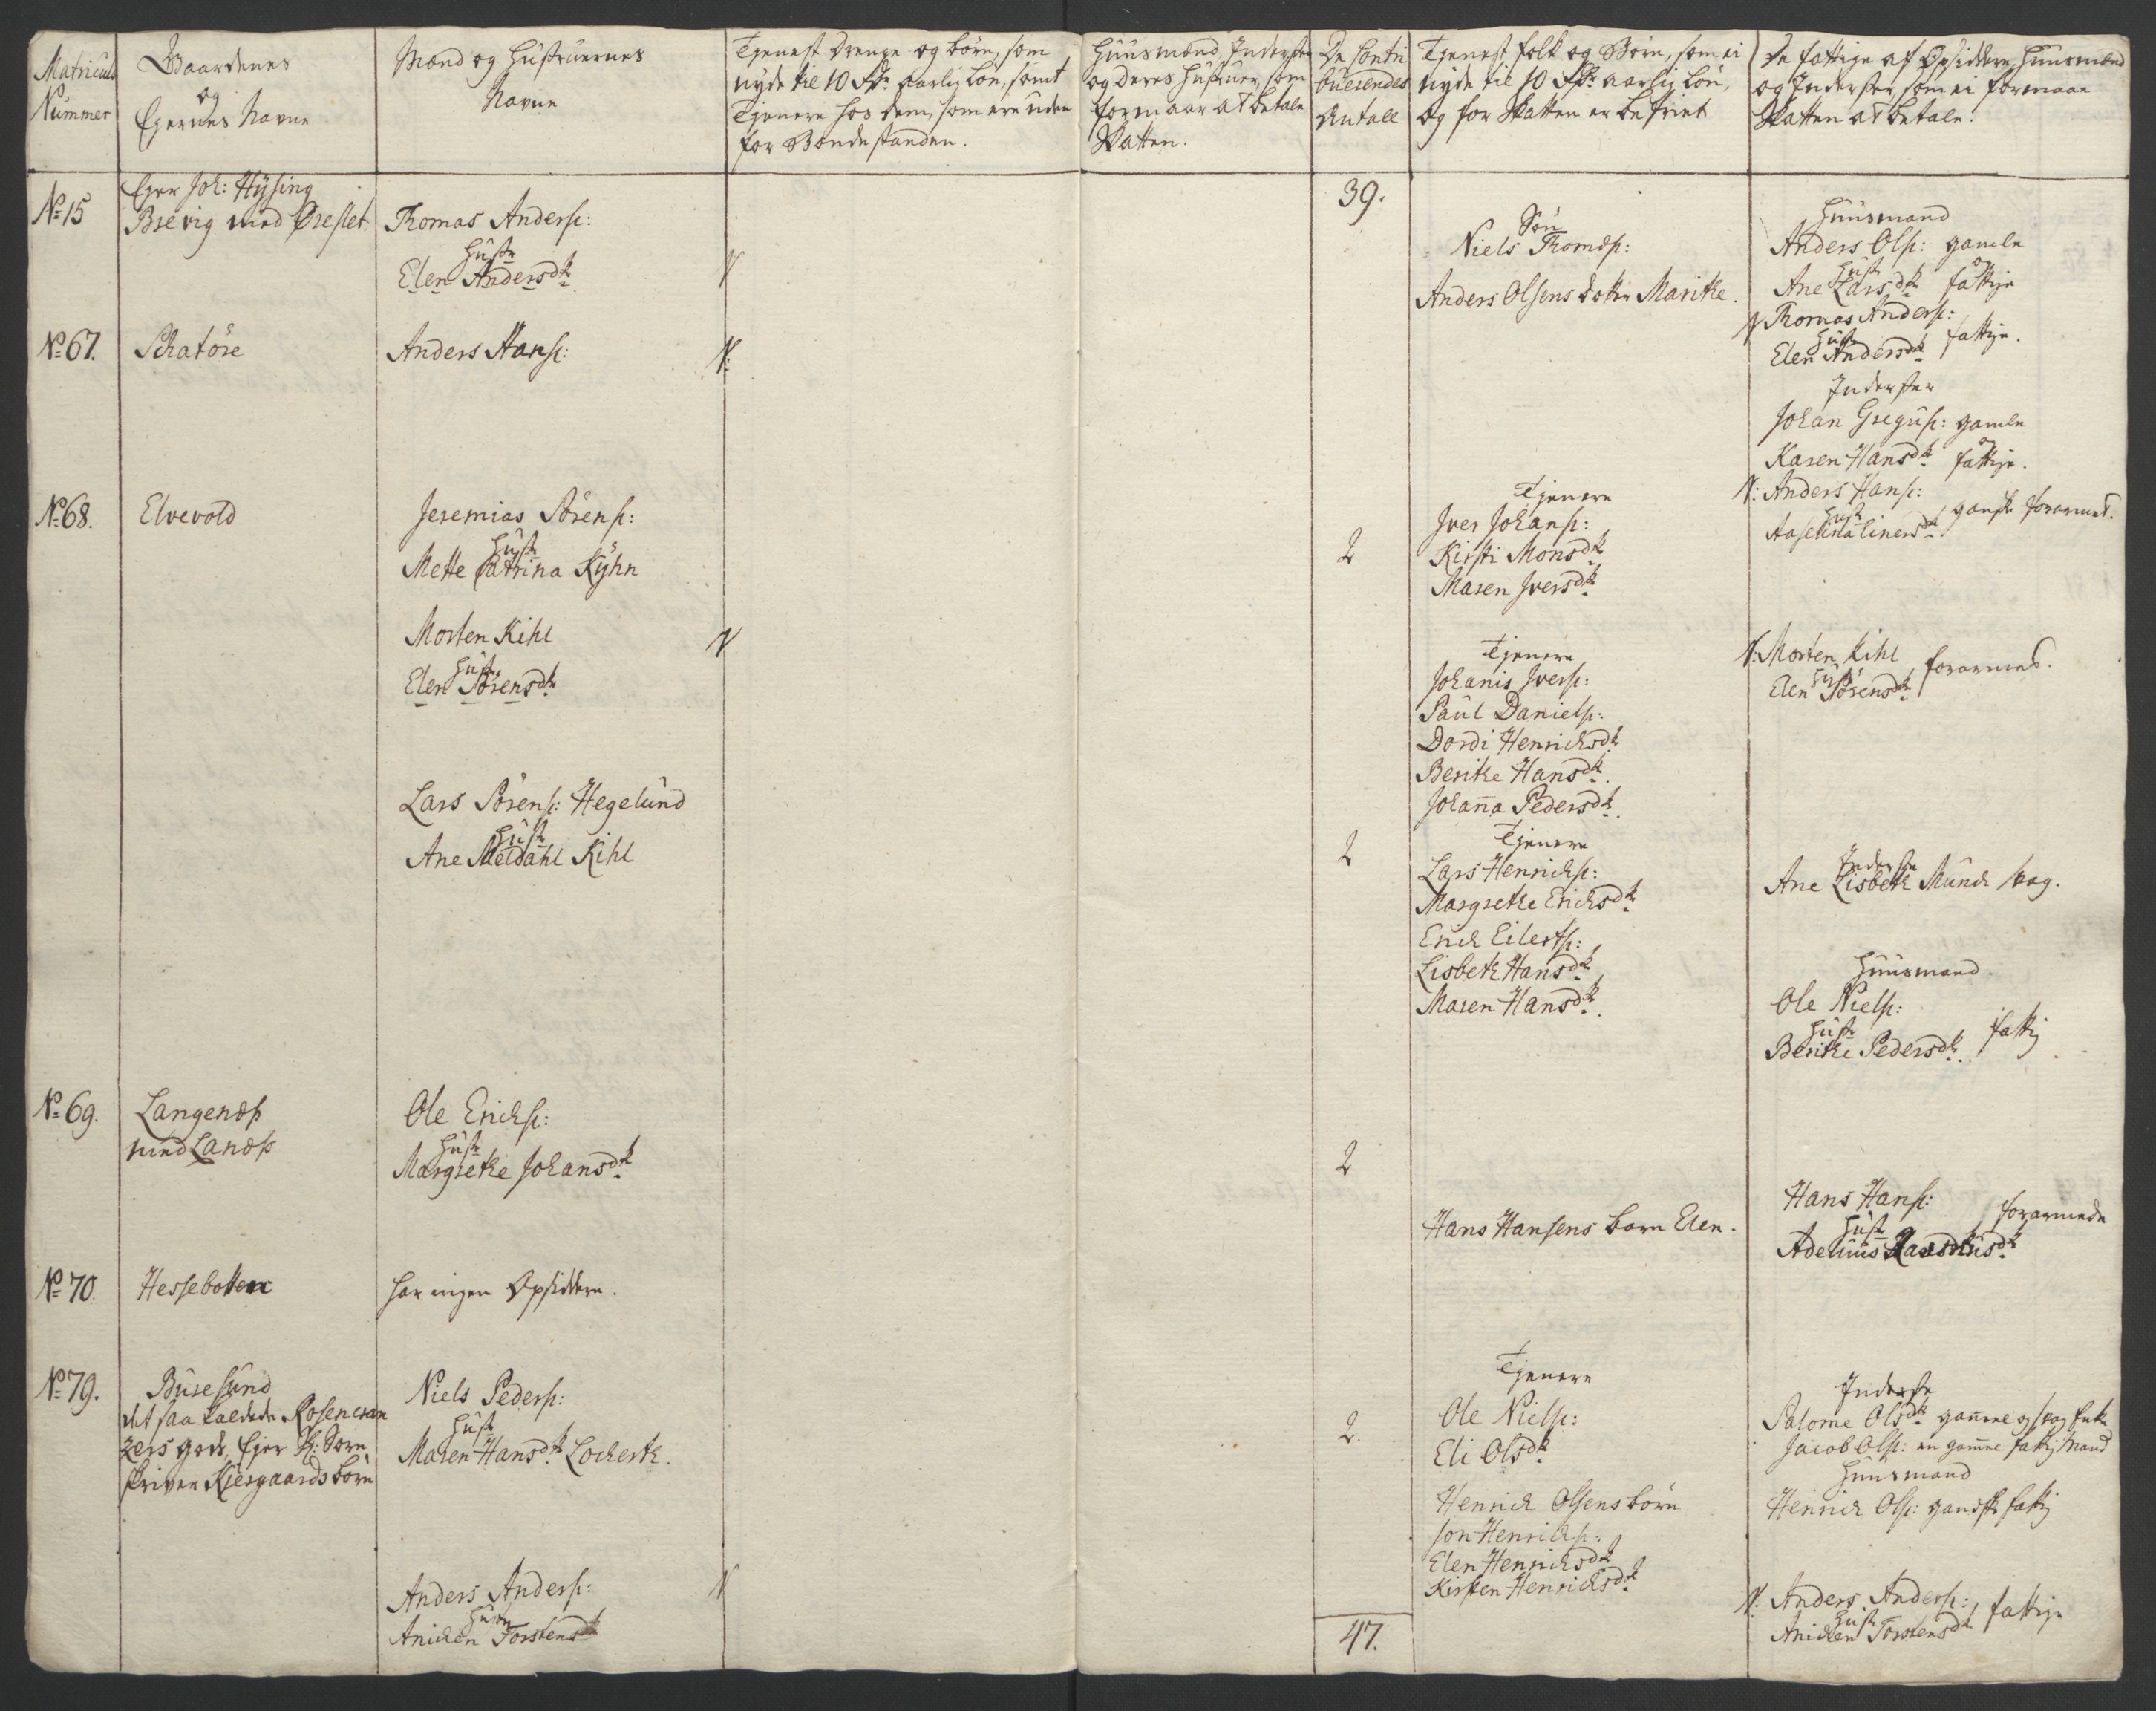 Matricul
Nummer
Gaardenes
og
Ejernes Navne
Mænd og Hustruernes
Navne
Tjeneste Drenge og børn, som
nyde til 10 Rdr aarlig Løn, samt
Tjenere hos dem, som ere uden
for Bondestanden.
Huusmænd, Inderster
og Deres Hustruer, som
formaar at betale
Skatten.
De Contri
buerendes
Antall
Tjeneste folk og Børn, som ei
nyde til 10 Rdr aarlig Løn,
og for Skatten er befriet
De fattige af Opsiddere, Huusmænd
og Inderster, som ei formaae
Skatten at betale.
39.
No 15
Ejer Joh: Hysing
Brevig med Øreslet
Thomas Anders:
Hustr
Elen Andersdtr
V
Søn
Niels Thoms:
Anders Olsens dotter Maritke.
Huusmand
Anders Ols: gamle
og
Hust
Ane Larsdtr fattige
V Thomas Anders:
Hust
Elen Andersdtr fattige.
No 67.
Skatøre
Anders Hans:
V:
Inderster
Johan Gregus: gamle
og
Karen Hansdtr fattige.
V: Anders Hans:
Hust
ganske forarmed.
No 68.
Elvevold
Jeremias Sørens:
Hust
Mette Catrina Kyhn
2
Tjenere
Iver Johans:
Kirsti Monsdtr
Maren Iversdtr
Morten Kihl
Hust
Elen Sørensdtr
V
Tjenere
Johanis Ivers:
Paul Daniels:
Dordi Henrichsdtr
Beritke Hansdtr.
Johanna Pedersdtr.
V: Morten Kihl
Hust
Elen Sørensdtr forarmed.
Lars Sørens: Hegelund
Hust
Ane Meldahl Kihl
2
Tjenere
Lars Henrichs:
Margretke Erichsdtr
Erich Eilerts:
Lisbeth Hansdtr
Maren Hansdtr.
Inderste
Ane Lisbeth Munch svag.
Huusmand
Ole Niels:
Hust
fattig
Beritke Pedersdtr.
No 69.
Langenæs
med Lanæs
Ole Erichs:
Hust
Margretke Johansdtr
2
Hans Hansens barn Elen.
Hans Hans:
Hust
forarmede
No 70
Hessebotten
har ingen Opsiddere.
No 79.
Buresund
det saa kaldede Rosencran
zers gods, Ejer Sr: Sorn
skriver Kiergaards børn
Niels Peders:
Hust
Maren Hansdtr Lockerte.
2.
Tjenere
Ole Niels:
Eli Olsdtr
Henrich Olsens børn
Jon Henrichs:
Elen Henrichsdtr
Kirsten Henrichsdtr
Inderste
Salome Olsdtr gamme og svag Enke
Jacob Ols: en gamme fattig Mand
Huusmand
Henrich Ols: gandske fattig
Anders Anders:
Hustr
Anichen Torstensdtr
V
V: Anders Anders:
Hust
Anichen Torstensdtr fattige
47.